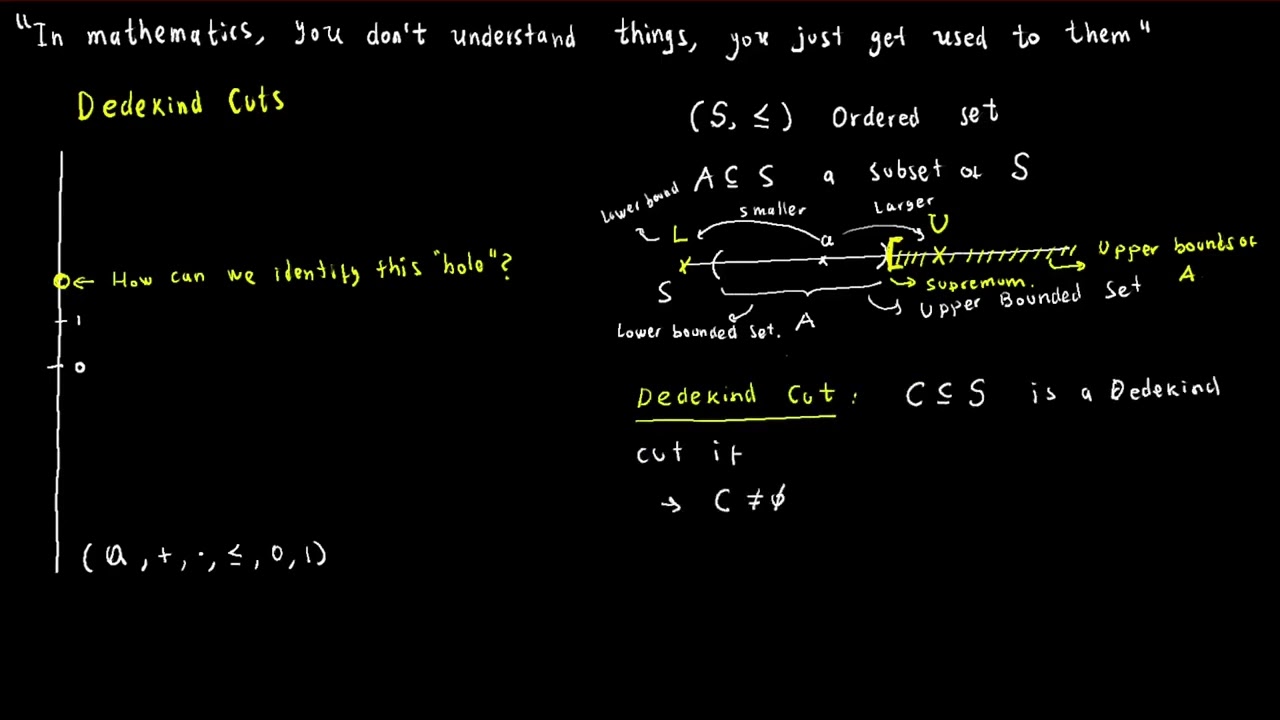 "In mathematics, you don't understand things, you just get used to them"
Dedekind Cuts
← How can we identify this "holo"?
1
0
(Q, +, ·, ≤, 0, 1)
(S, ≤) Ordered set
A ⊆ S a subset of S
Lower bound
smaller
Larger
L
a
U
Upper bounds of A
S
supremum.
Upper Bounded Set
Lower bounded set.
A
Dedekind Cut: C ⊆ S is a Dedekind
cut if
→ C ≠ ∅